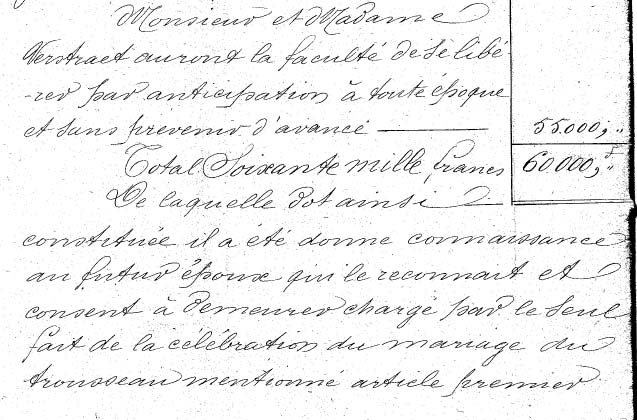 Monsieur et Madame
Verstraet auront la faculté de se libé-
-rer par anticipation à toute époque
et sans prévenir d'avance ——— 55.000,"
Total Soixante mille francs 60.000f,"
De laquelle Dot ainsi
constituée il a été donné connaissance
au futur époux qui le reconnait et
consent à demeurer chargé par le seul
fait de la célébration du mariage du
trousseau mentionné article premier